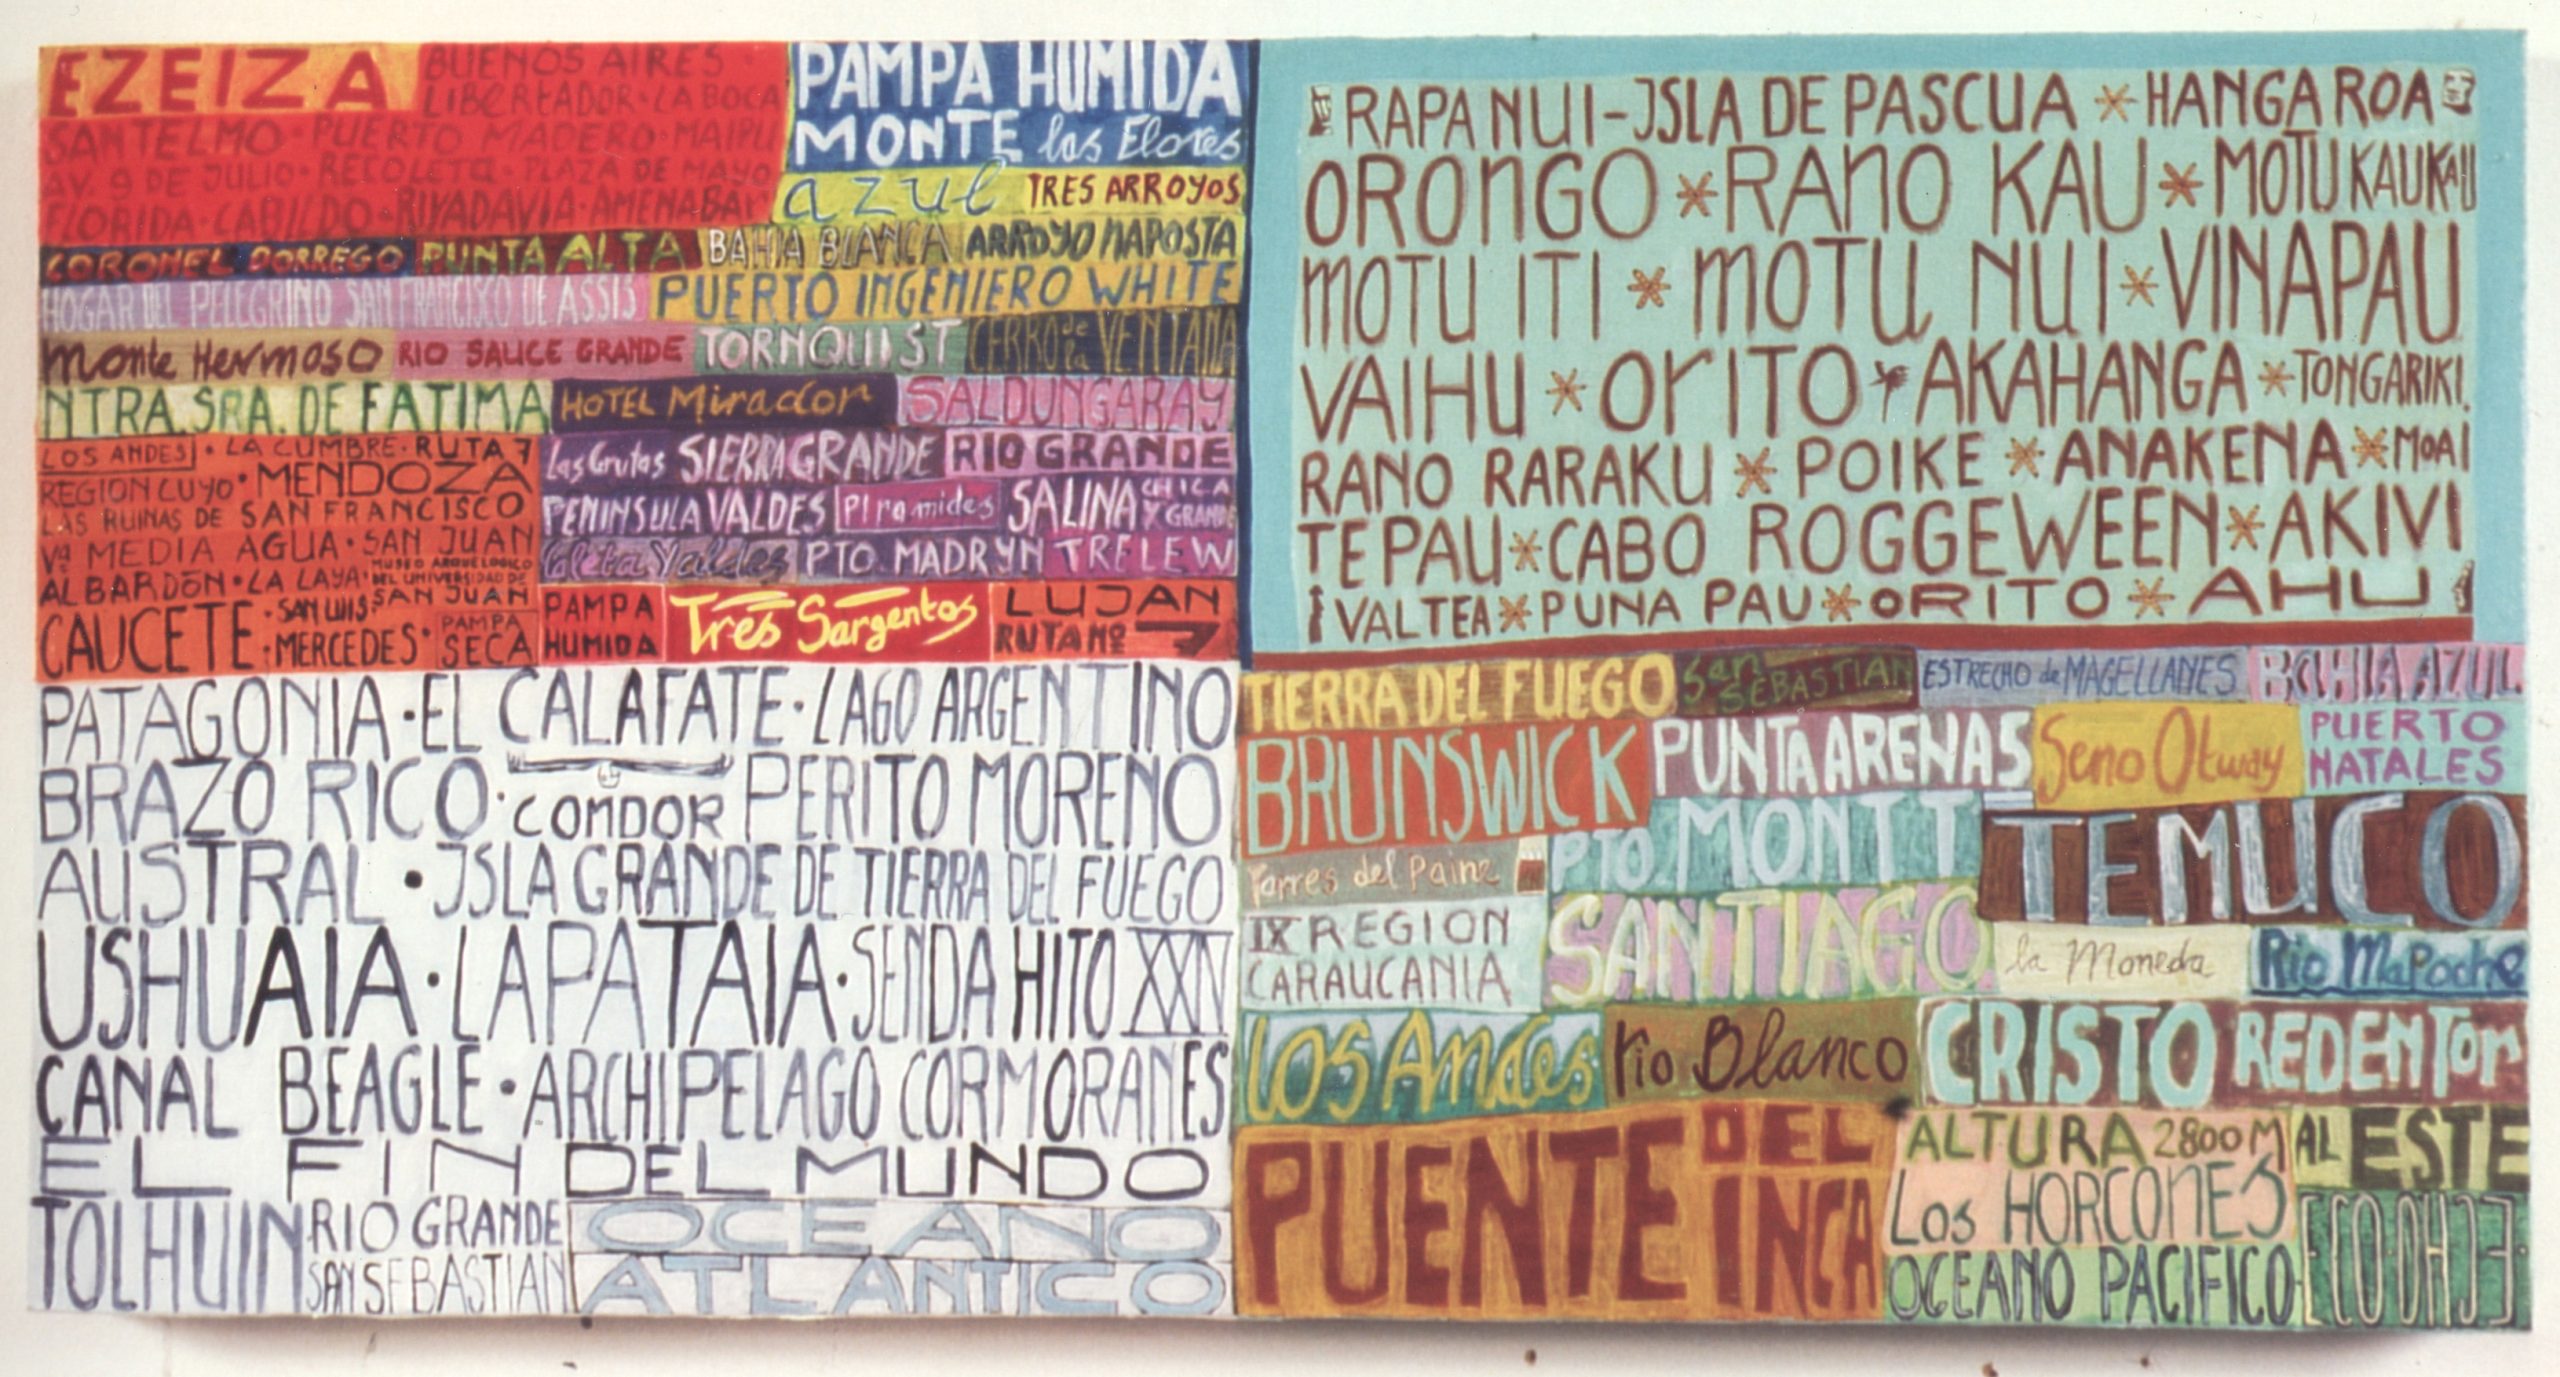 EZEIZA
BUENOS AIRES ·
LIBERTADOR · LA BOCA
SAN TELMO · PUERTO MADERO · MAIPU
AV. 9 DE JULIO · RECOLETA · PLAZA DE MAYO
FLORIDA · CABILDO · RIVADAVIA · AMENABAR
PAMPA HUMIDA
MONTE las Flores
azul TRES ARROYOS
CORONEL DORREGO PUNTA ALTA BAHIA BLANCA ARROYO NAPOSTA
HOGAR DEL PELEGRINO SAN FRANCISCO DE ASSIS PUERTO INGENIERO WHITE
Monte Hermoso RIO SAUCE GRANDE TORNQUIST CERRO de la VENTANA
NTRA. SRA. DE FATIMA HOTEL Mirador SALDUNGARAY
LOS ANDES · LA CUMBRE · RUTA 7
REGION CUYO · MENDOZA
LAS RUINAS DE SAN FRANCISCO
Vª MEDIA AGUA · SAN JUAN
ALBARDÓN · LA LAYA · MUSEO ARQUEOLOGICO DEL UNIVERSIDAD DE SAN JUAN
CAUCETE · SAN LUIS · MERCEDES · PAMPA SECA
Las Grutas SIERRA GRANDE RIO GRANDE
PENINSULA VALDES Piramides SALINA CHICA Y GRANDE
Caleta Valdes PTO. MADRYN TRELEW
PAMPA HUMIDA Tres Sargentos LUJAN RUTA Nº 7
PATAGONIA · EL CALAFATE · LAGO ARGENTINO
BRAZO RICO · CONDOR PERITO MORENO
AUSTRAL · JSLA GRANDE DE TIERRA DEL FUEGO
USHUAIA · LAPATAIA · SENDA HITO XXIV
CANAL BEAGLE · ARCHIPELAGO CORMORANES
EL FIN DEL MUNDO
TOLHUIN RIO GRANDE
SAN SEBASTIAN
OCEANO
ATLANTICO
RAPA NUI - JSLA DE PASCUA * HANGA ROA
ORONGO * RANO KAU * MOTU KAUKAU
MOTU ITI * MOTU NUI * VINAPAU
VAIHU * ORITO * AKAHANGA * TONGARIKI.
RANO RARAKU * POIKE * ANAKENA * MOAI
TEPAU * CABO ROGGEWEEN * AKIVI
VALTEA * PUNA PAU * ORITO * AHU
TIERRA DEL FUEGO San SEBASTIAN ESTRECHO de MAGELLANES BAHIA AZUL.
BRUNSWICK PUNTA ARENAS Seno Otway PUERTO NATALES
Torres del Paine PTO. MONTT TEMUCO
IX REGION
CARAUCANIA
SANTIAGO la Moneda Rio Mapoche
Los Andes rio Blanco CRISTO REDENTOR
PUENTE DEL INCA
ALTURA 2800 M AL ESTE
Los HORCONES
OCEANO PACIFICO